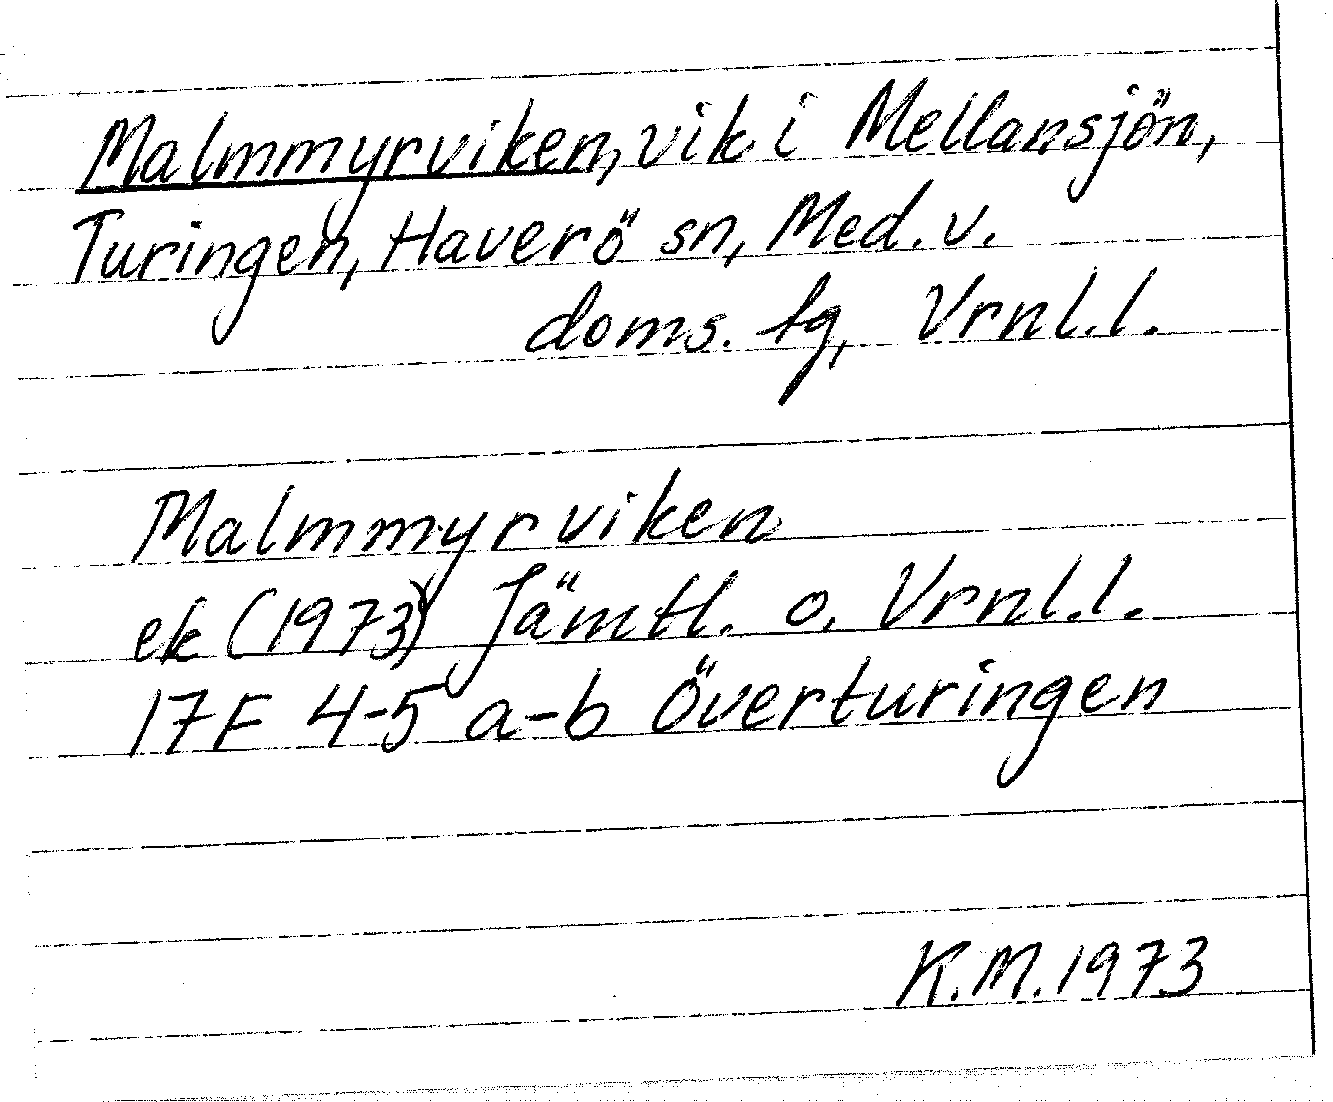 Malmmyrviken, vik i Mellansjön,
Turingen, Haverö sn, Med. v.
doms. tg, Vrnl. l.
Malmmyrviken
ek (1973) Jämtl. o. Vrnl. l.
17F 4-5 a-b Överturingen
K.M. 1973